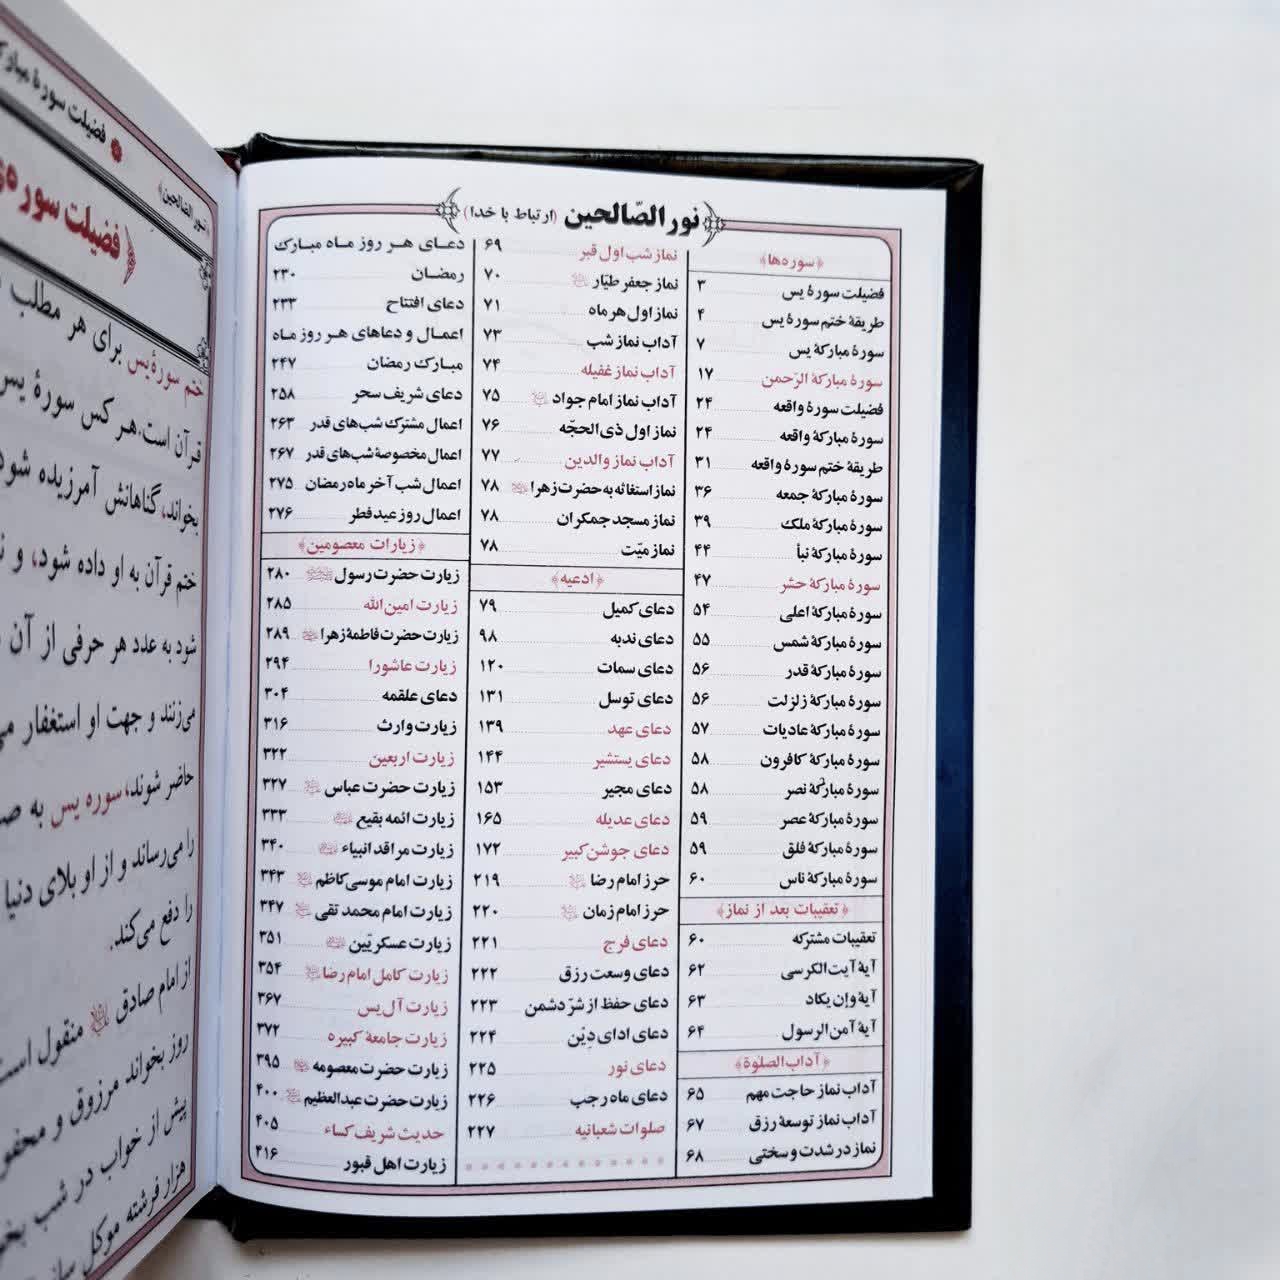 نور الصّالحین (ارتباط با خدا)
﴿سوره‌ها﴾
فضیلت سورهٔ یس ۳
طریقهٔ ختم سورهٔ یس ۴
سورهٔ مبارکهٔ یس ۷
سورهٔ مبارکهٔ الرّحمن ۱۷
فضیلت سورهٔ واقعه ۲۴
سورهٔ مبارکهٔ واقعه ۲۴
طریقهٔ ختم سورهٔ واقعه ۳۱
سورهٔ مبارکهٔ جمعه ۳۶
سورهٔ مبارکهٔ ملک ۳۹
سورهٔ مبارکهٔ نبأ ۴۴
سورهٔ مبارکهٔ حشر ۴۷
سورهٔ مبارکهٔ اعلی ۵۴
سورهٔ مبارکهٔ شمس ۵۵
سورهٔ مبارکهٔ قدر ۵۶
سورهٔ مبارکهٔ زلزلت ۵۶
سورهٔ مبارکهٔ عادیات ۵۷
سورهٔ مبارکهٔ کافرون ۵۸
سورهٔ مبارکهٔ نصر ۵۸
سورهٔ مبارکهٔ عصر ۵۹
سورهٔ مبارکهٔ فلق ۵۹
سورهٔ مبارکهٔ ناس ۶۰
﴿تعقیبات بعد از نماز﴾
تعقیبات مشترکه ۶۰
آیهٔ آیت الکرسی ۶۲
آیهٔ وإن یکاد ۶۳
آیهٔ آمن الرسول ۶۴
﴿آداب الصلوة﴾
آداب نماز حاجت مهم ۶۵
آداب نماز توسعهٔ رزق ۶۷
نماز در شدت و سختی ۶۸
نماز شب اول قبر ۶۹
نماز جعفر طیّار ۷۰
نماز اول هر ماه ۷۱
آداب نماز شب ۷۳
آداب نماز غفیله ۷۴
آداب نماز امام جواد ۷۵
نماز اول ذی الحجّه ۷۶
آداب نماز والدین ۷۷
نماز استغاثه به حضرت زهرا ۷۸
نماز مسجد جمکران ۷۸
نماز میّت ۷۸
﴿ادعیه﴾
دعای کمیل ۷۹
دعای ندبه ۹۸
دعای سمات ۱۲۰
دعای توسل ۱۳۱
دعای عهد ۱۳۹
دعای یستشیر ۱۴۴
دعای مجیر ۱۵۳
دعای عدیله ۱۶۵
دعای جوشن کبیر ۱۷۲
حرز امام رضا ۲۱۹
حرز امام زمان ۲۲۰
دعای فرج ۲۲۱
دعای وسعت رزق ۲۲۲
دعای حفظ از شرّ دشمن ۲۲۳
دعای ادای دِیْن ۲۲۴
دعای نور ۲۲۵
دعای ماه رجب ۲۲۶
صلوات شعبانیه ۲۲۷
دعای هر روز ماه مبارک
رمضان ۲۳۰
دعای افتتاح ۲۳۳
اعمال و دعاهای هر روز ماه
مبارک رمضان ۲۴۷
دعای شریف سحر ۲۵۸
اعمال مشترک شب‌های قدر ۲۶۳
اعمال مخصوصهٔ شب‌های قدر ۲۶۷
اعمال شب آخر ماه رمضان ۲۷۵
اعمال روز عید فطر ۲۷۶
﴿زیارات معصومین﴾
زیارت حضرت رسول ۲۸۰
زیارت امین الله ۲۸۵
زیارت حضرت فاطمهٔ زهرا ۲۸۹
زیارت عاشورا ۲۹۴
دعای علقمه ۳۰۴
زیارت وارث ۳۱۶
زیارت اربعین ۳۲۲
زیارت حضرت عباس ۳۲۷
زیارت ائمه بقیع ۳۳۳
زیارت مراقد انبیاء ۳۴۰
زیارت امام موسی کاظم ۳۴۳
زیارت امام محمد تقی ۳۴۷
زیارت عسکریّین ۳۵۱
زیارت کامل امام رضا ۳۵۴
زیارت آل یس ۳۶۷
زیارت جامعهٔ کبیره ۳۷۲
زیارت حضرت معصومه ۳۹۵
زیارت حضرت عبدالعظیم ۴۰۰
حدیث شریف کساء ۴۰۵
زیارت اهل قبور ۴۱۶
فضیلت سورهٔ
نور الصالحین
فضیلت سوره‌ی
ختم سورهٔ یس برای هر مطلب
قرآن است. هر کس سورهٔ یس
بخواند، گناهانش آمرزیده شود
ختم قرآن به او داده شود، و
شود به عدد هر حرفی از آن
می‌زنند و جهت او استغفار
حاضر شوند، سوره یس به
را می‌رساند و از او بلای دنیا
را دفع می‌کند.
از امام صادق منقول است
روز بخواند مرزوق و
پیش از خواب در شب
هزار فرشته موکل